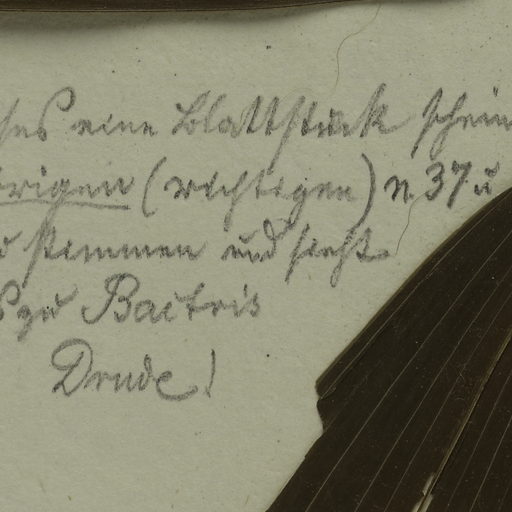 eine Blattstück schein
brigen (richtigen) n. 37 u
stimmen und sieht
zu Bactris
Drude!